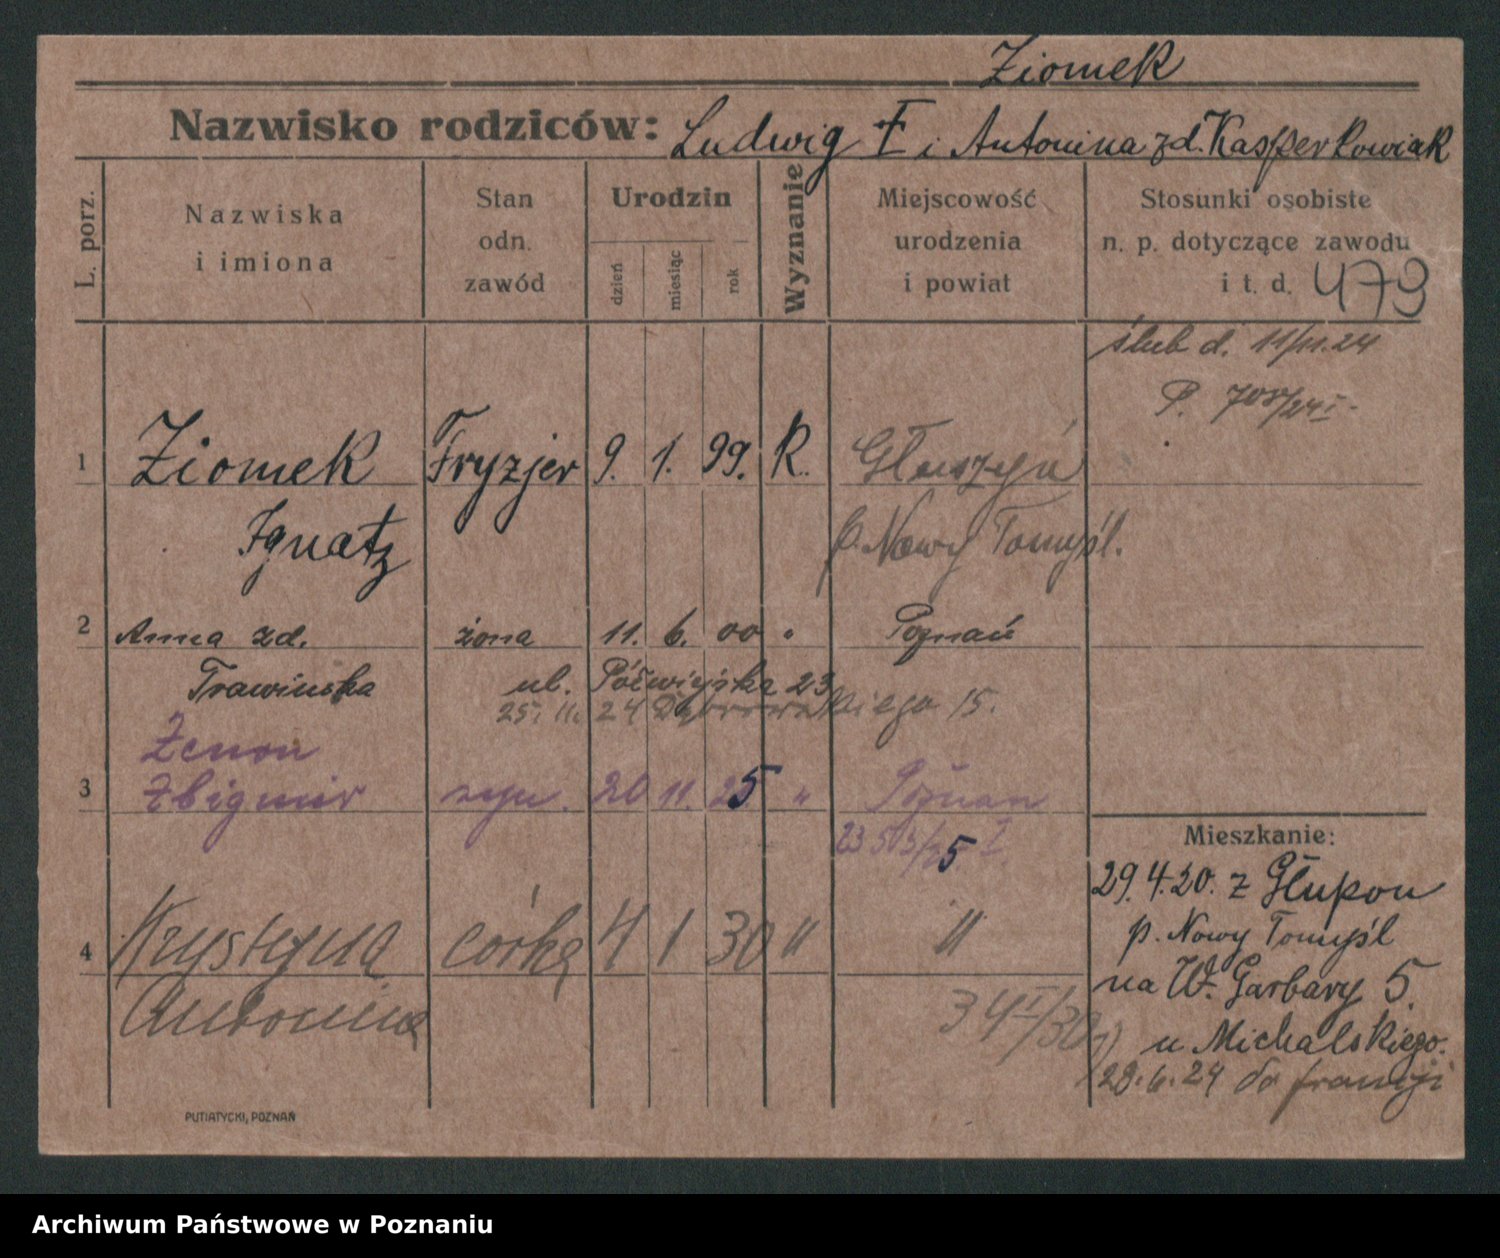 Ziomek
Nazwisko rodziców: Ludwig Ŧ i Antonina zd. Kasperkowiak
L. porz.
Nazwiska
i imiona
Stan
odn.
zawód
Urodzin
dzień
miesiąc
rok
Wyznanie
Miejscowość
urodzenia
i powiat
Stosunki osobiste
n. p. dotyczące zawodu
i t. d. 479
ślub d. 11/11.24
P. 708/24 I.
1 Ziomek Fryzjer 9. 1. 99. R. Głuszyń
Ignatz p. Nowy Tomyśl.
2 Anna zd. żona 11. 6. 00 " Poznań
Trawińska ul. Półwiejska 23
25. 11. 24 Dąbrowskiego 15.
Zenon
3 Zbigniew syn. 20 11. 25 " Poznań
5 I.
4 Krystyna córka 4 1 30 " "
Antonina
34 I/30
Mieszkanie:
29.4.20. z Głupon
p. Nowy Tomyśl
na W. Garbary 5.
u Michalskiego.
28.6.24 do francji
PUTIATYCKI, POZNAŃ
Archiwum Państwowe w Poznaniu